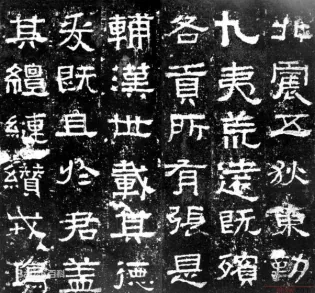 北震五狄東勤
九夷荒遠既殯
各貢所有張是
輔漢世載其德
爰既且於君蓋
其繵縺纘戎鴻